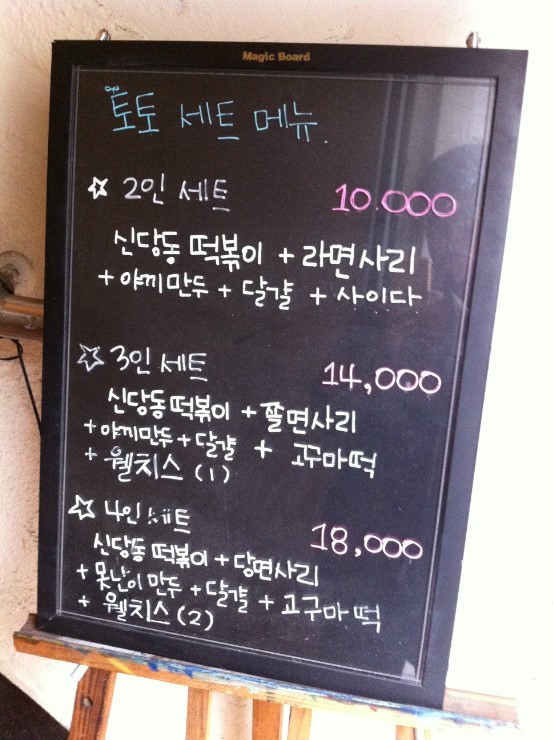 Magic Board
토토 세트 메뉴.
☆ 2인 세트 10.000
신당동 떡볶이 + 라면사리
+ 야끼만두 + 달걀 + 사이다
☆ 3인 세트 14,000
신당동 떡볶이 + 쫄면사리
+ 야끼만두 + 달걀 + 고구마떡
+ 웰치스 (1)
☆ 4인 세트 18,000
신당동 떡볶이 + 당면사리
+ 못난이 만두 + 달걀 + 고구마떡
+ 웰치스 (2)